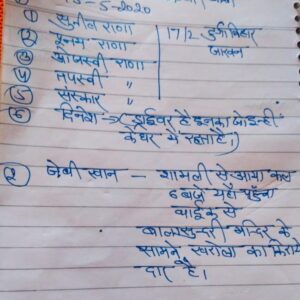 ① -5-2020
① सुनील राणा
② पूनम राणा
③ राणा 17/2 दुर्गा विहार
④ तपस्वी " जाखन
⑤ संस्कार "
⑥ दिनेश → (ड्राईवर है इनका
के घर में रहता है।)
② जेबी खान - शामली से आया कल
6 बजे यहाँ पहुँचा
बाईक से
बालासुन्दरी मन्दिर के
सामने खरोला का किराये
दार है।